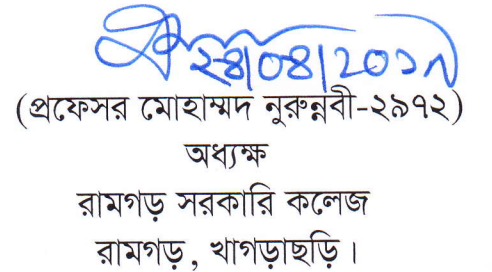 ২৪/০৪/২০১৭
(প্রফেসর মোহাম্মদ নুরুন্নবী-২৯৭২)
অধ্যক্ষ
রামগড় সরকারি কলেজ
রামগড়, খাগড়াছড়ি।